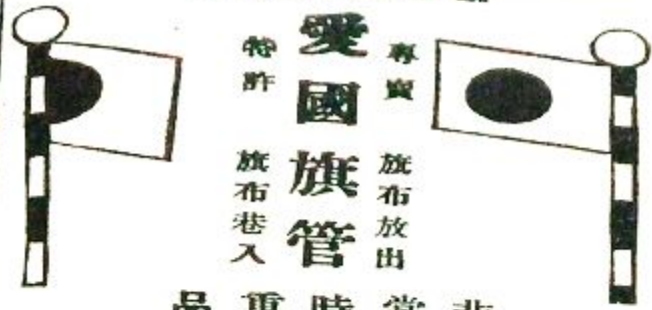 專賣
特許
愛國旗管
旗布放出
旗布巻入
非常時重品